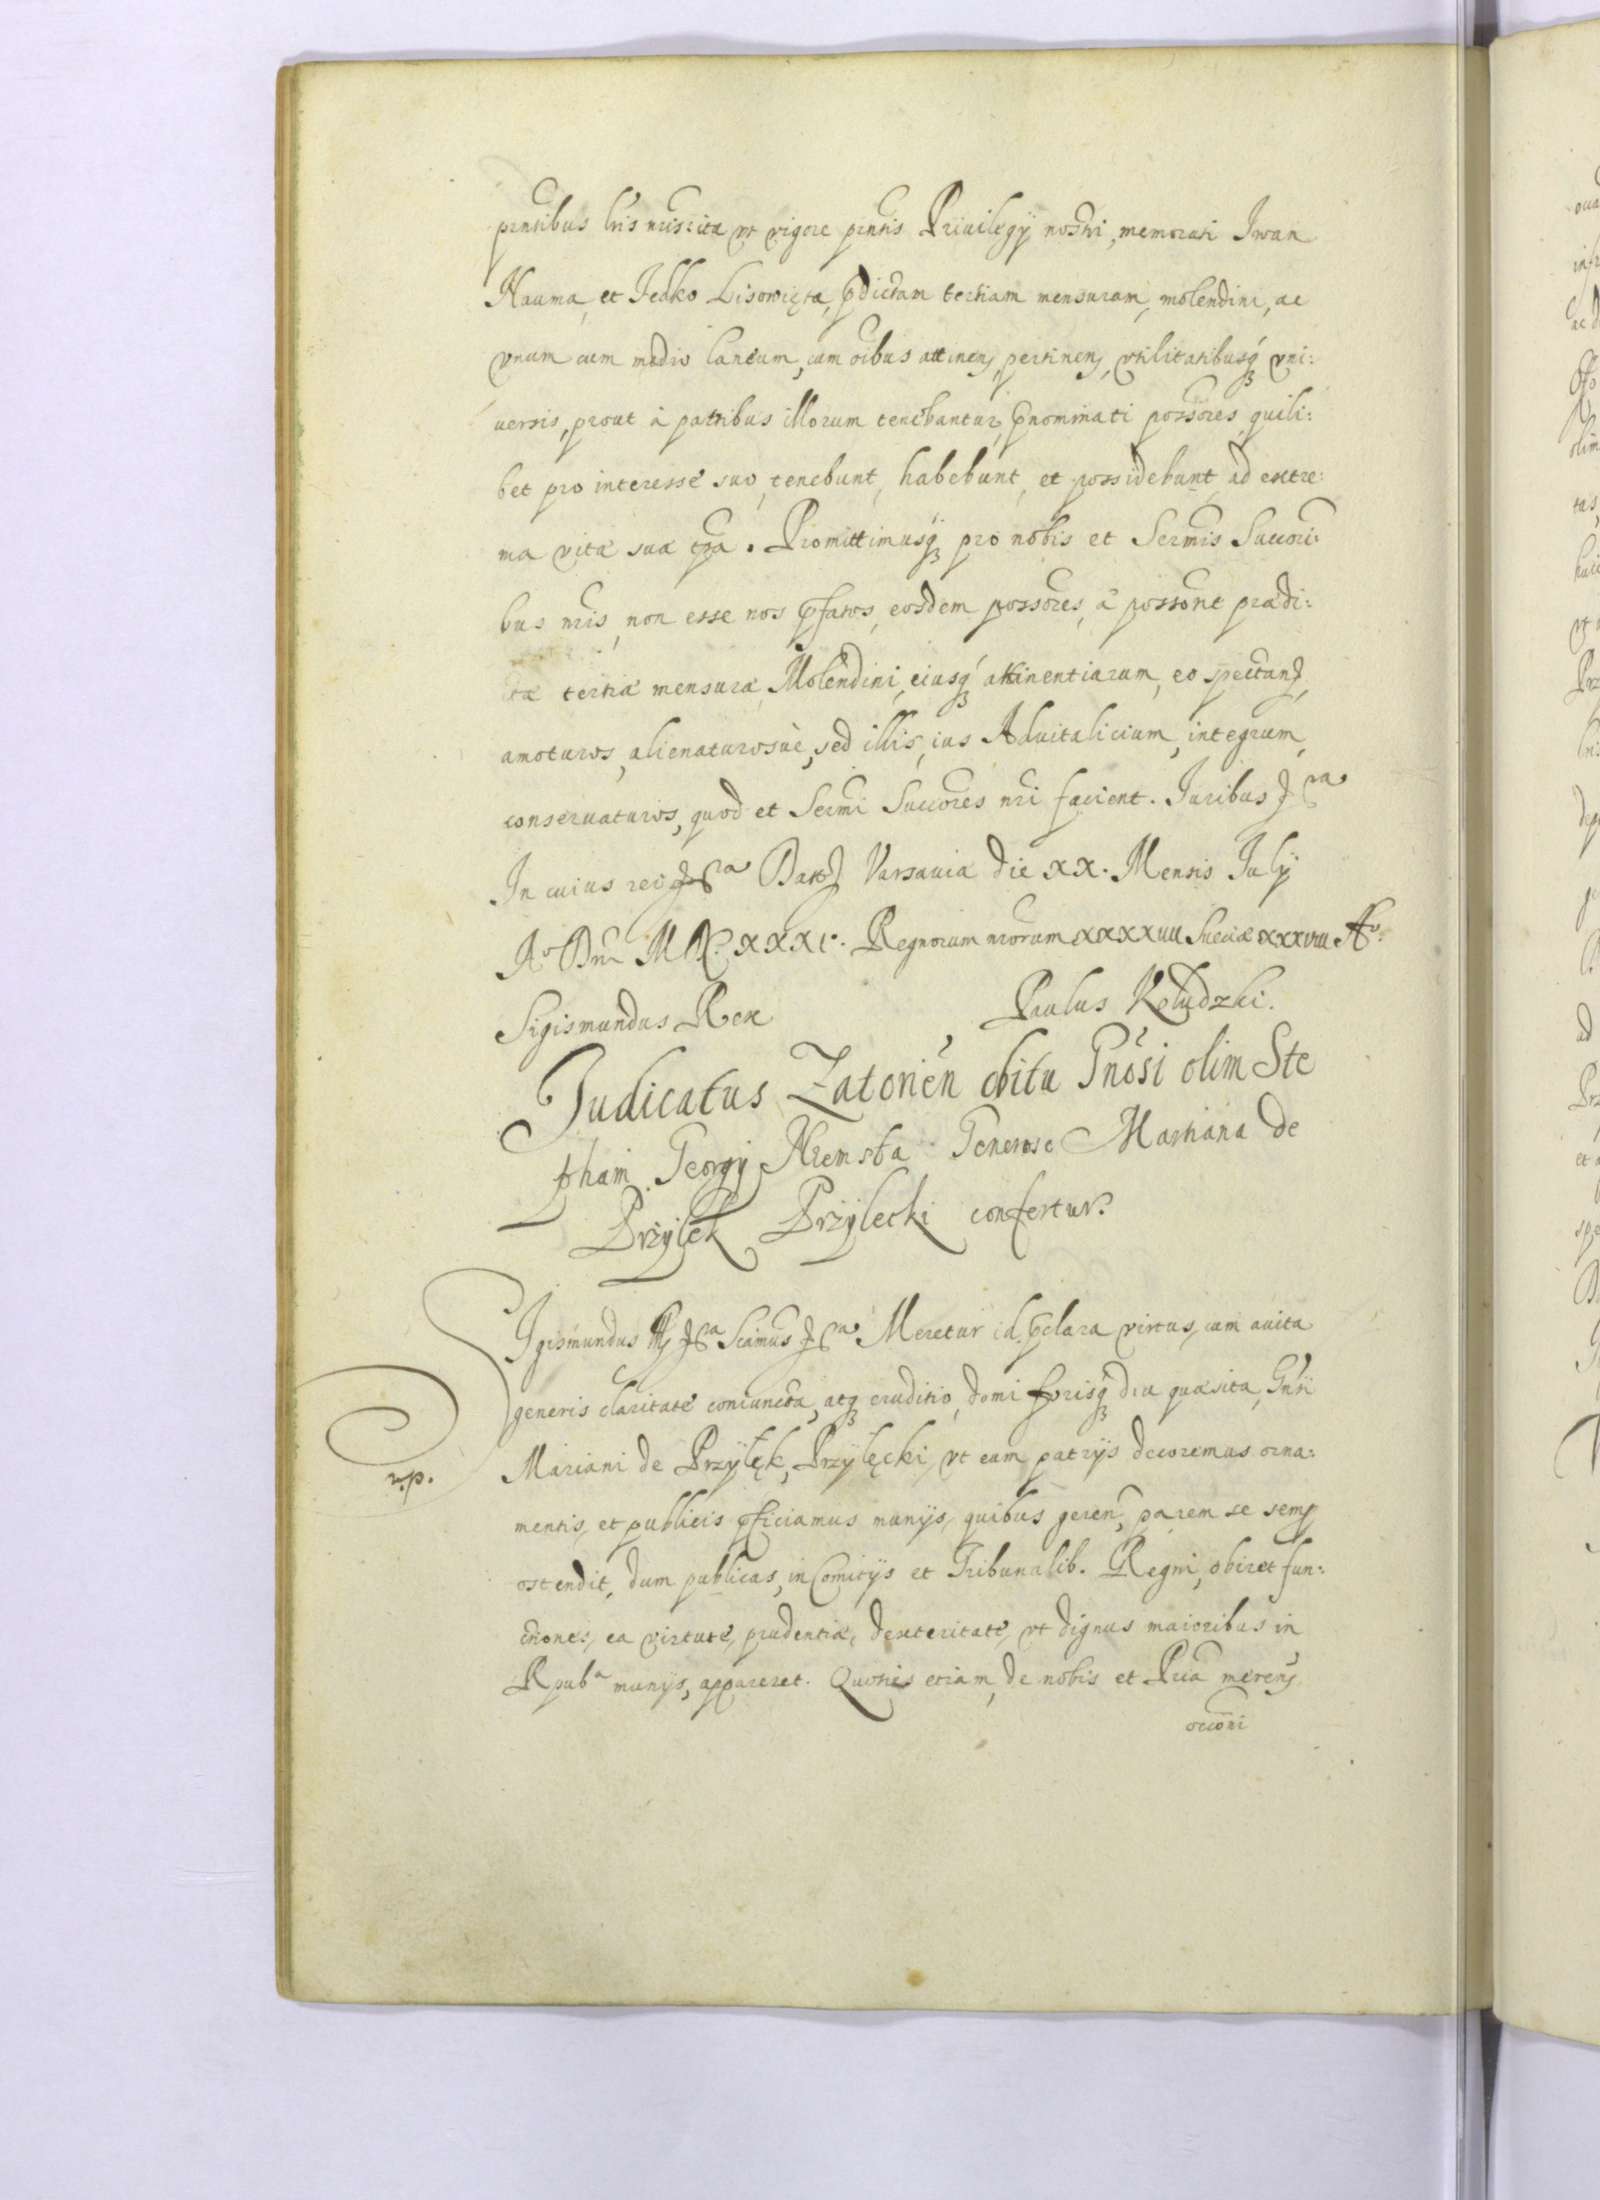 pritibus lris nris: ita vt vigore pntis Priuilegij nostri, memorati Iwan
Hauma, et Fedko Lisowięta, pdictam tertiam mensuram, molendini, ac
vnum cum medio laneum, cum oibus attinen, pertinen, vtilitatibusq vni:
uersis, prout à patribus illorum tenebantur, pnominati possores, quili:
bet pro interesse suo, tenebunt, habebunt, et possidebunt, ad extre:
ma vitæ suæ tpa. Promittimusq pro nobis et Sermis Succori:
bus nris, non esse nos pfatos, eosdem possores, à possone prædi:
tæ tertiæ mensuræ, Molendini, eiusq attinentiarum, eo spectan,
amoturos, alienaturosuè, sed illis, ius Aduitalicium, integrum,
conseruaturos, quod et Sermi Succores nri facient. Iuribus &ca
In cuius rei &ca Datt Varsauiæ die XX. Mensis Iulij
Ao Dni M DC. XXXI. Regnorum nrorum XXXXIIII Sueciæ XXXVIII Ao.
Sigismundus Rex
Paulus Kołudzki.
Iudicatus Zatorien obitu Gnosi olim Ste
phani Georgij Niemsta Generoso Mariano de
Przyłęk Przyłecki confertur.
Sigismundus &ca Scimus &ca Meretur id, pclara virtus, cum auita
generis claritatè coniuncta, atq eruditio, domi forisq diu quæsita, Gnsi
Mariani de Przyłęk, Przyłęcki, vt eum patrijs decoremus orna:
r.p.
mentis, et publicis pficiamus munijs, quibus geren, parem se semp
ostendit, dum publicas, in Comitijs et Tribunalib. Regni, obiret fun:
ctiones, ea virtutè, prudentia, dexteritatè, vt dignus maioribus in
Rpuba munijs, appareret. Quotiès etiam, de nobis et Pria merens
occoni